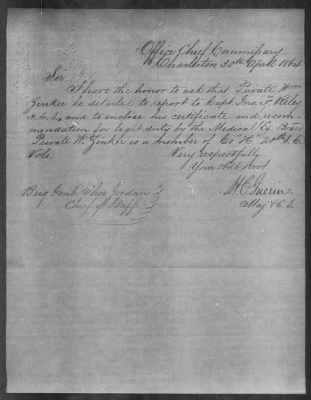 Office Chief Commissary
Charleston 30th April 1864
Sir
I have the honor to ask that Private Wm
Zenker be detailed to report to Capt Jno. F. Riley
A.C.S. and to enclose his certificate and recom-
mendation for light duty by the Medical Ex. Board
Private W. Zenker is a member of Co "H" 20th S.C.
Vols.
Very respectfully
Your Obt Servt.
H C Guerin
Maj & C.S.
Brig Genl Thos Jordan
Chief of Staff